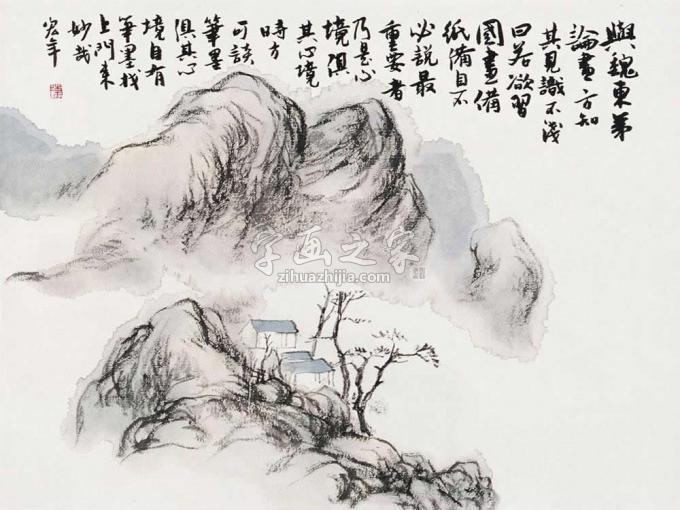 與魏東弟
論畫方知
其見識不淺
曰若欲習
國畫備
紙備自不
必說最
重要者
乃是心
境俱
其心境
時方
可談
筆墨
俱其心
境自有
筆墨找
上門來
妙哉
宏年
字画之家
zihuazhijia.com